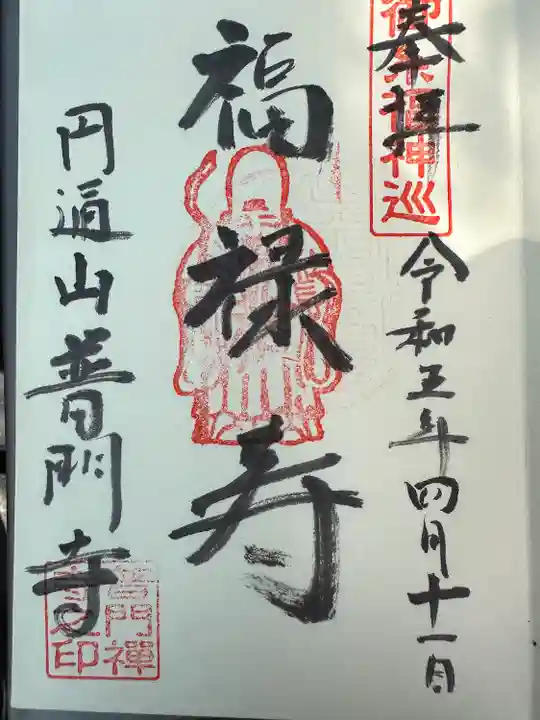 奉拝
令和五年四月十一日
福禄寿
円通山普門寺
普門禅
寺之印